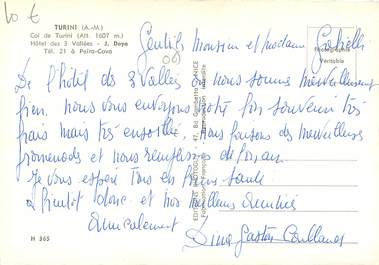 10 €
TURINI (A.-M.)
Col de Turini (Alt. 1607 m)
Hôtel des 3 Vallées - J. Doya
Tél. 21 à Peïra-Cava
Photographie
Véritable
Gentils Monsieur et madame
(06)
De l'hôtel des 3 Vallées où nous sommes merveilleusement
bien, nous vous envoyons notre bon souvenir très
frais mais très ensoleillé, nous faisons des merveilleuses
promenades et nous remplissons de
Je vous espère tous en bonne santé
à bientôt donc et nos meilleures amitiés
Amicalement
Gaston
H 365
Reproduction interdite